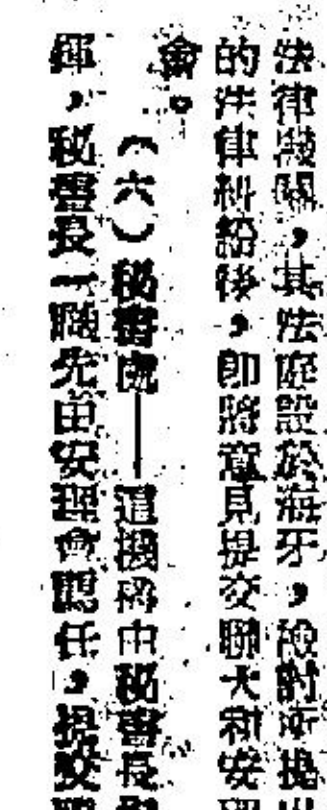 法律機關，其法庭設於海牙，檢討所提出
的法律糾紛後，即將意見提交聯大和安理
會。
（六）秘書處——這機構由秘書長
揮，秘書長一職先由安理會聘任，提交聯